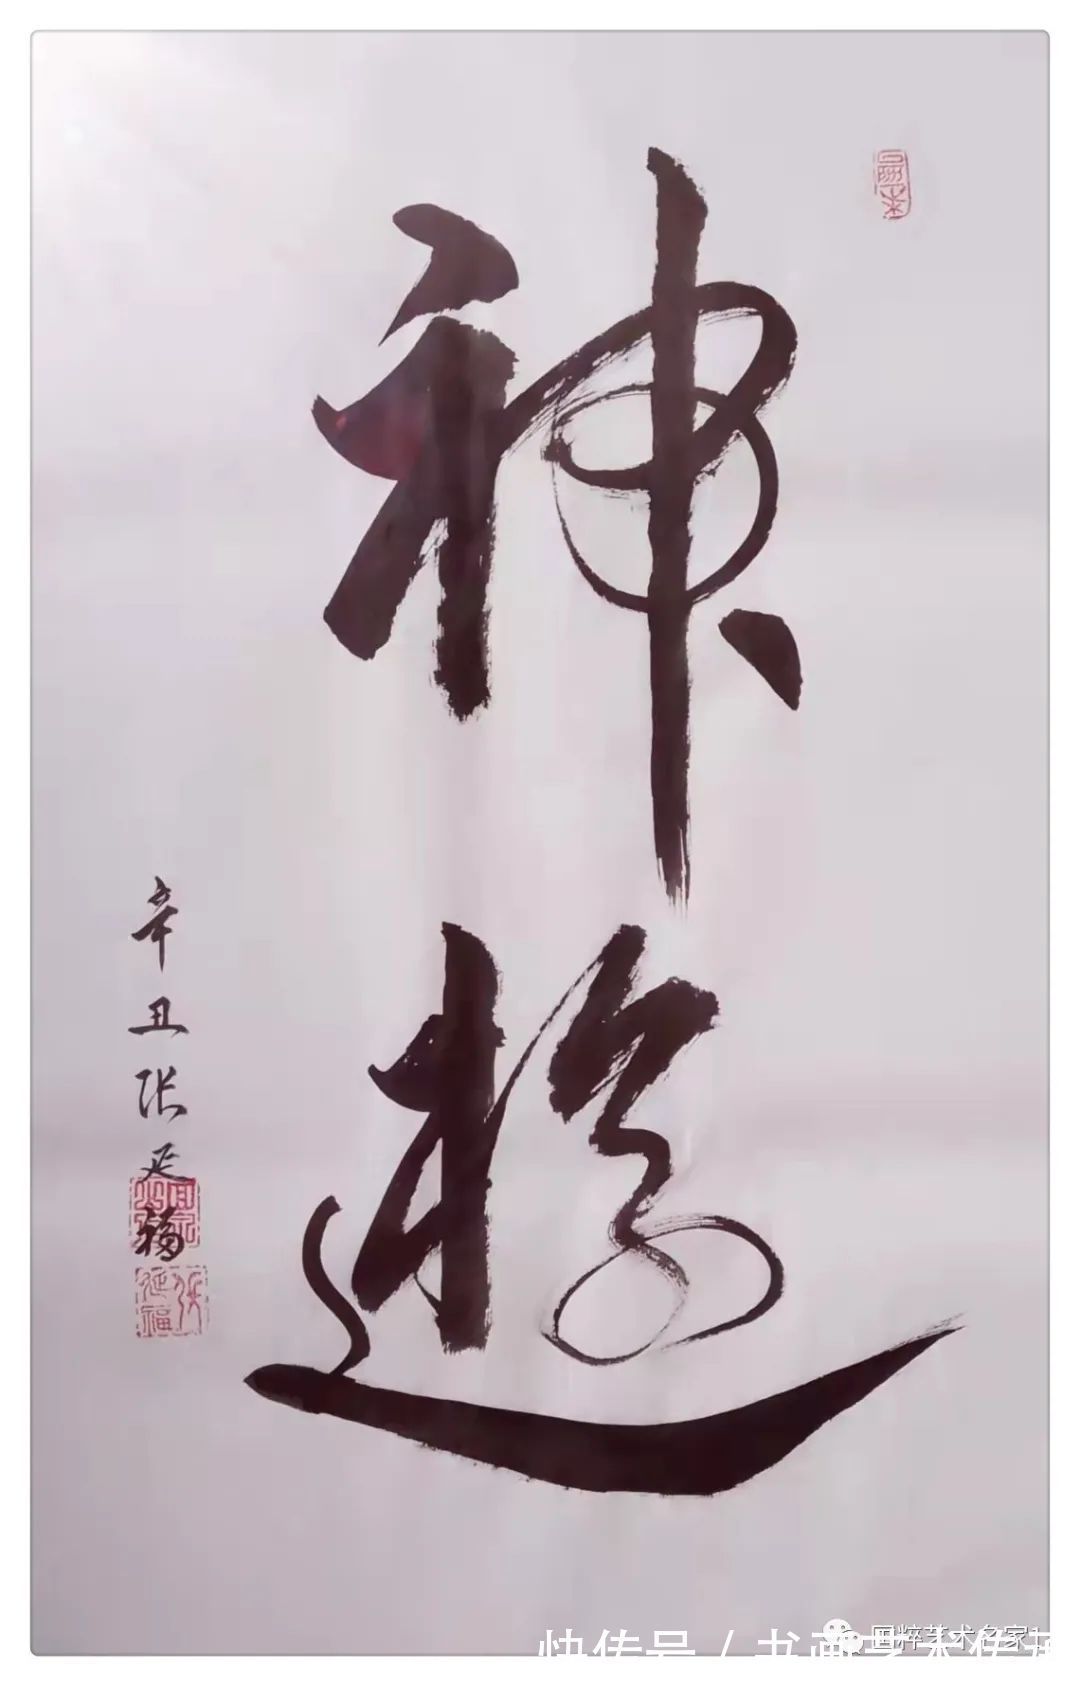 神遊
辛丑张延福
张延福
快传号 / 书画艺术传
国粹艺术名家1